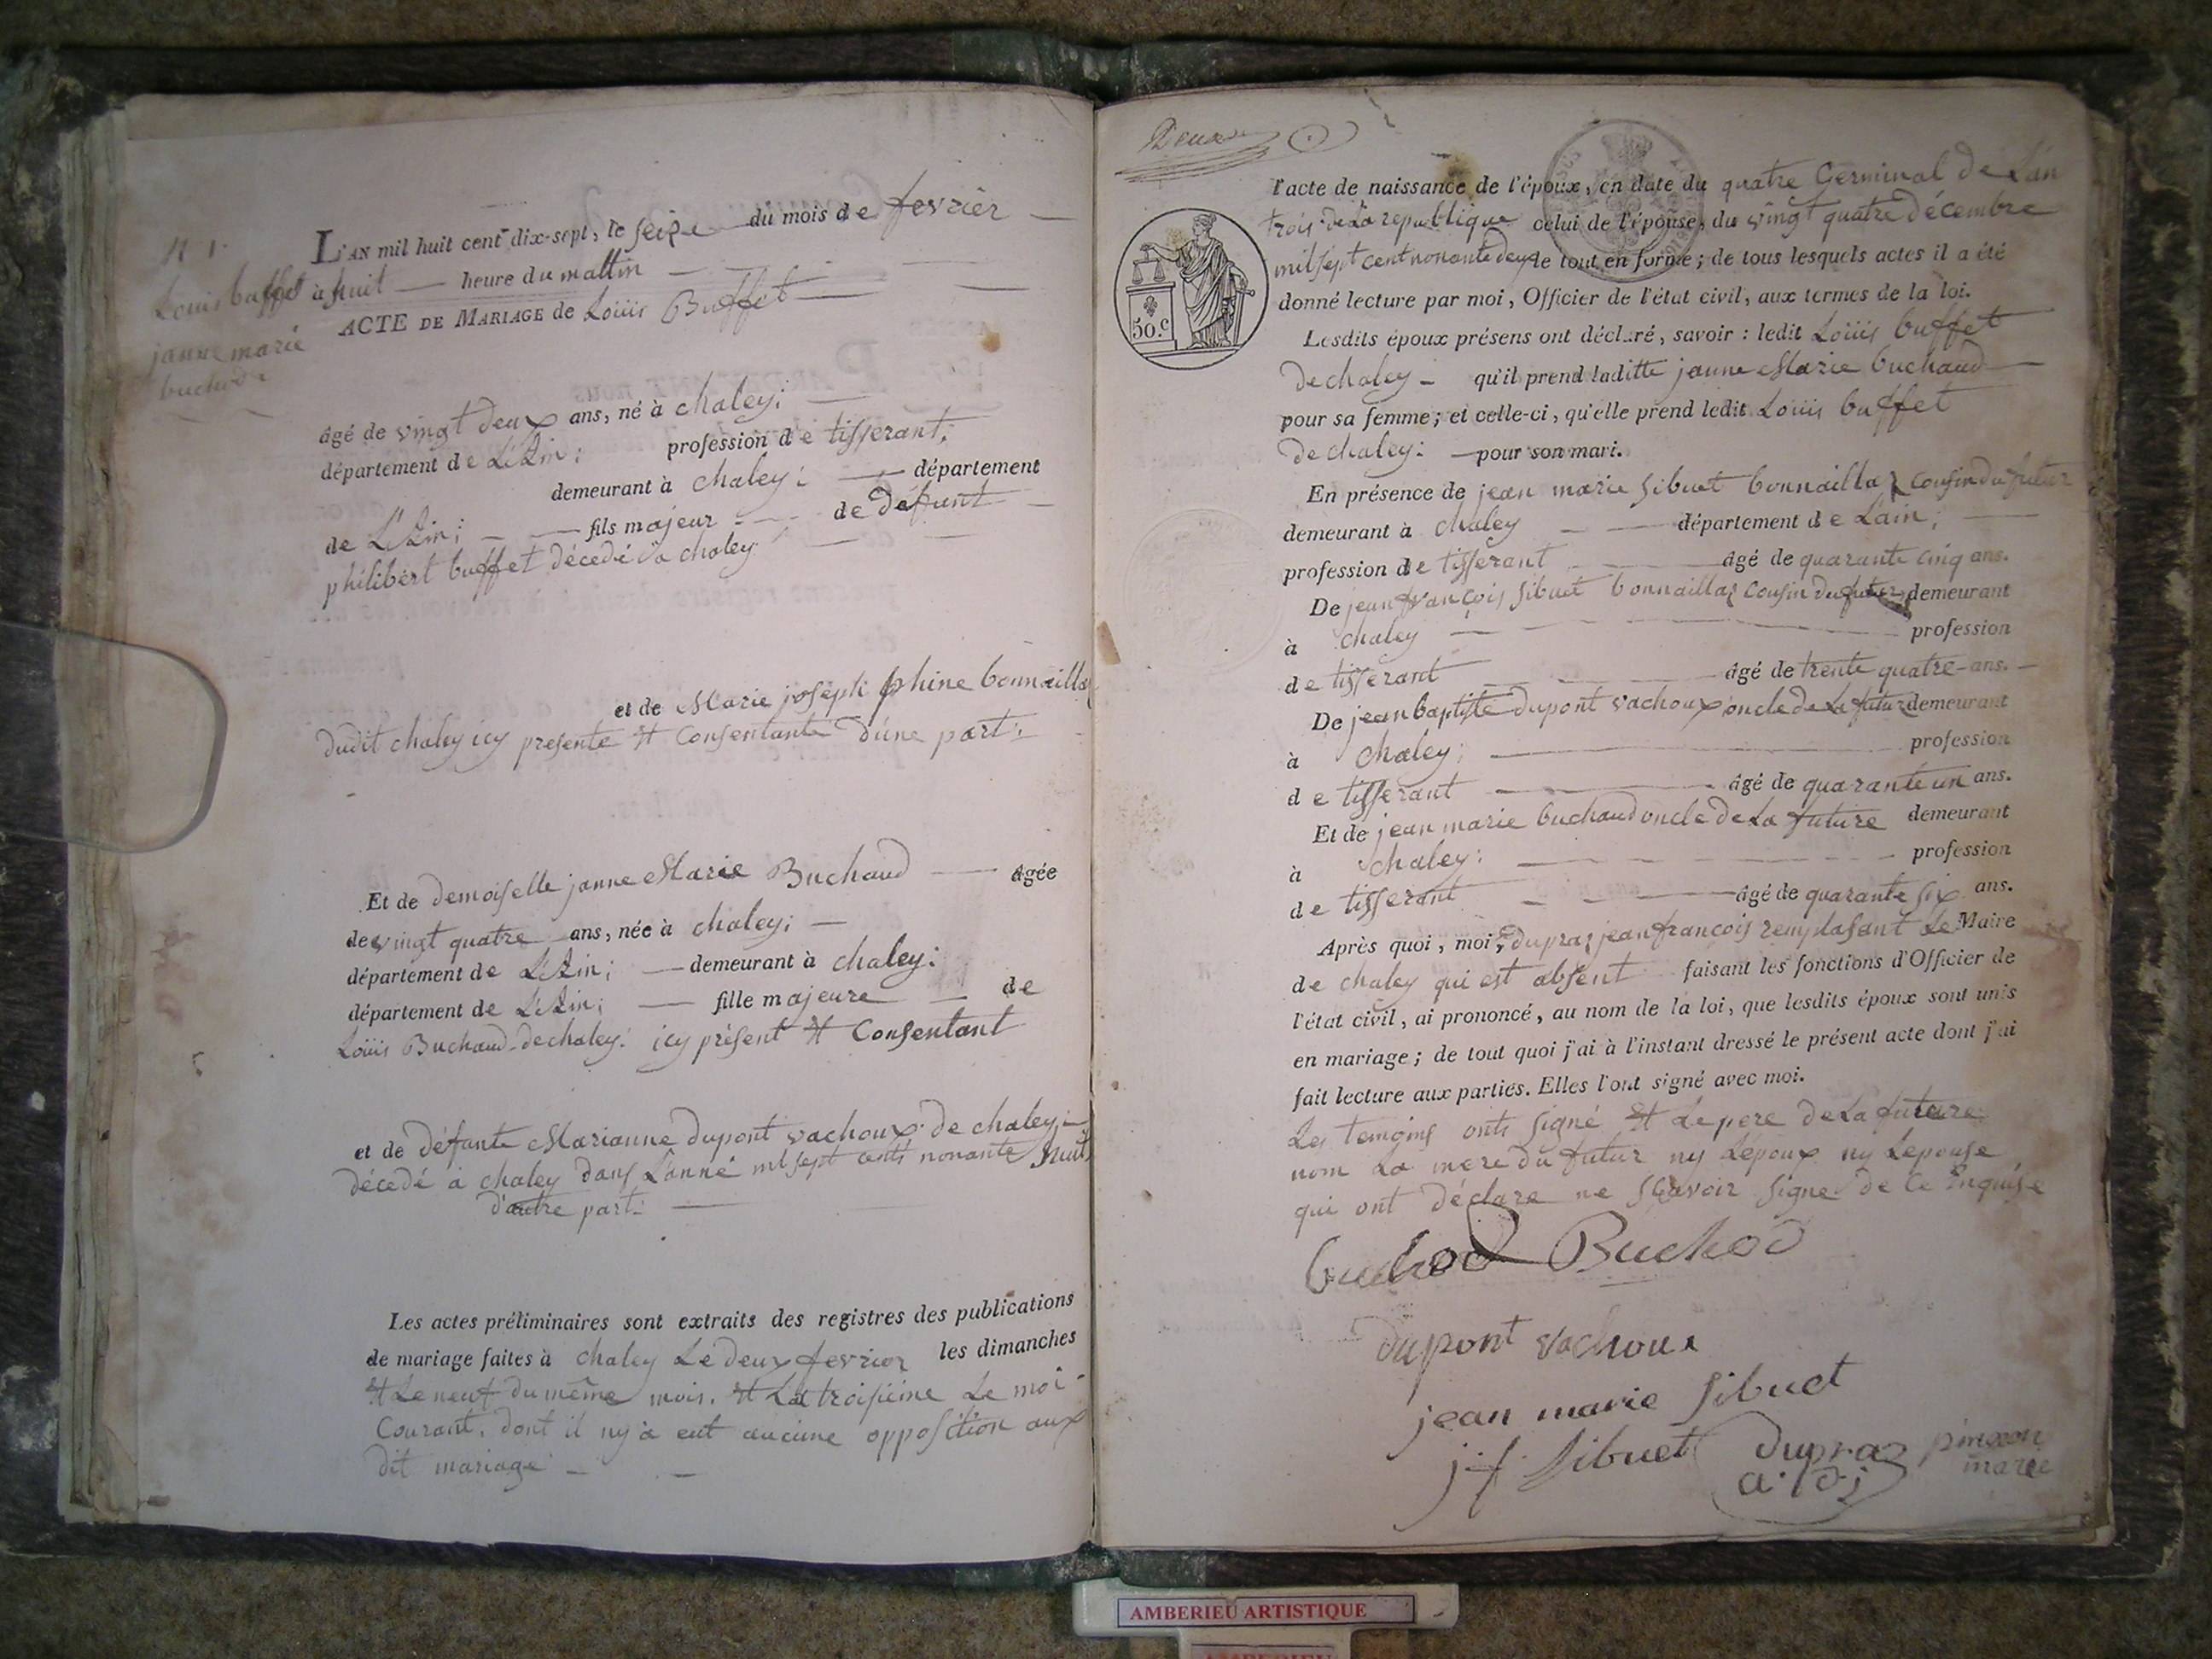 N 1.
Louis buffet
janne marie
buchod
L'AN mil huit cent dix-sept, le seize du mois de fevrier
à huit heure du mattin
ACTE DE MARIAGE de Loüis Buffet
âgé de vingt deux ans, né à chaley;
département de L'Ain; profession de tisserant;
demeurant à chaley; département
de L'Ain; fils majeur de défunt
philibért buffet décedé à chaley
et de Marie joseph phine bonnaillaz
dudit chaley icy presente et Consentante d'une part:
Et de demoiselle janne Marie Buchaud âgée
de vingt quatre ans, née à chaley;
département de L'Ain; demeurant à chaley;
département de L'Ain; fille majeure de
Loüis Buchaud de chaley: icy présent et Consentant
et de défante Marianne dupont vachoux de chaley;
décedé à chaley dans L'anné mil sept cents nonante huit
d'autre part:
Les actes préliminaires sont extraits des registres des publications
de mariage faites à chaley Le deux fevrier les dimanches
et Le neuf du même mois. et La troisiéme Le moi
Courant. dont il ny a eut aucune opposition aux
dit mariage
Deux
l'acte de naissance de l'époux, en date du quatre Germinal de L'an
trois de La republique celui de l'épouse, du vingt quatre décembre
mil sept cent nonante deux le tout en forme; de tous lesquels actes il a été
donné lecture par moi, Officier de l'état civil, aux termes de la loi.
50.c
Lesdits époux présens ont déclaré, savoir: ledit Loüis buffet
de chaley qu'il prend laditte janne Marie buchaud
pour sa femme; et celle-ci, qu'elle prend ledit Loüis buffet
de chaley: pour son mari.
En présence de jean marie sibuet bonnaillaz cousin du futur
demeurant à chaley département de L'ain;
profession de tisserant âgé de quarante cinq ans.
De jean françois sibuet bonnaillaz cousin du futur demeurant
à chaley profession
de tisserant âgé de trente quatre ans.
De jean baptiste dupont vachoux oncle de La futur demeurant
à chaley; profession
de tisserant âgé de quarante un ans.
Et de jean marie buchaud oncle de La future demeurant
à chaley: profession
de tisserant âgé de quarante six ans.
Après quoi, moi, dupraz jean francois remplasant Le Maire
de chaley qui est absent faisant les fonctions d'Officier de
l'état civil, ai prononcé, au nom de la loi, que lesdits époux sont unis
en mariage; de tout quoi j'ai à l'instant dressé le présent acte dont j'ai
fait lecture aux parties. Elles l'ont signé avec moi.
Les temoins onts signé et Le pere de La future
nom La mere du futur ny Lépoux ny Lepouse
qui ont déclare ne sçavoir signe de Ce Enquise
buchod Buchod
dupont vachoux
jean marie sibuet
jf sibuet dupraz
a.dj
maree
AMBERIEU ARTISTIQUE
AMBERIEU